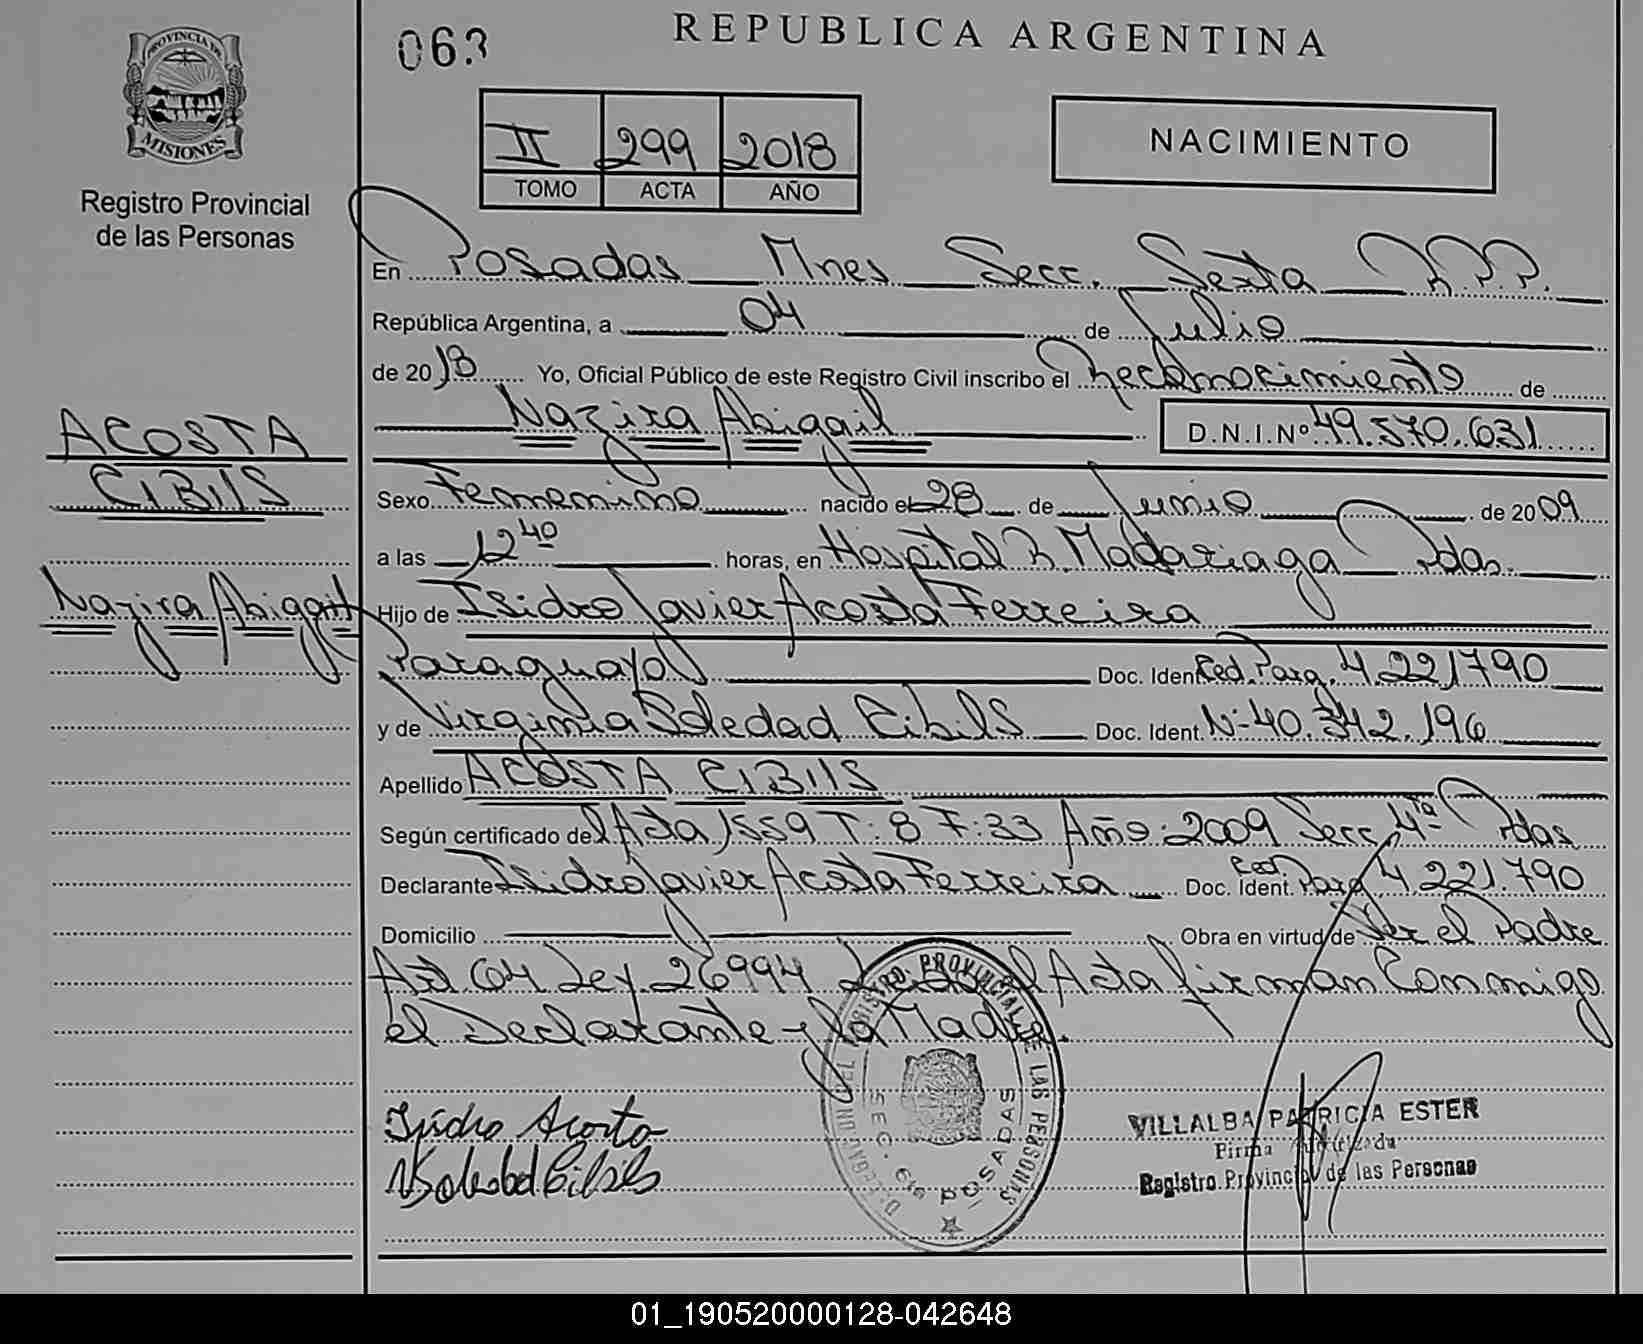 PROVINCIA DE
MISIONES
Registro Provincial
de las Personas
ACOSTA
CIBILS
Nazira Abigail
063
REPUBLICA ARGENTINA
II 299 2018
TOMO ACTA AÑO
NACIMIENTO
En Posadas Mnes Secc. Sexta R.P.P.
República Argentina, a 04 de Julio
de 2018 Yo, Oficial Público de este Registro Civil inscribo el Reconocimiento de
Nazira Abigail D.N.I.Nº 49.570.631
Sexo Femenino nacido el 28 de Junio de 2009
a las 12 40 horas, en Hospital R. Madariaga Pdas.
Hijo de Isidro Javier Acosta Ferreira
Paraguayo Doc. Ident. Ced. Parg. 4.221790
y de Virginia Soledad Cibils Doc. Ident. Nº 40.342.196
Apellido ACOSTA CIBILS
Según certificado del Acta 1559 T: 8 F: 33 Año: 2009 Secc 4ta Pdas
Declarante Isidro Javier Acosta Ferreira Doc. Ident. Ced. Parg 4.221.790
Domicilio Obra en virtud de Ser el Padre
Art. 64 Ley. 26994 Acta firman Conmigo
el Declarante y la Madre.
Isidro Acosta
VSoledad Cibils
DELEGACION DEL REGISTRO PROVINCIAL DE LAS PERSONAS
SEC. 6ta POSADAS
VILLALBA PATRICIA ESTER
Firma Autorizada
Registro Provincial de las Personas
01_190520000128-042648